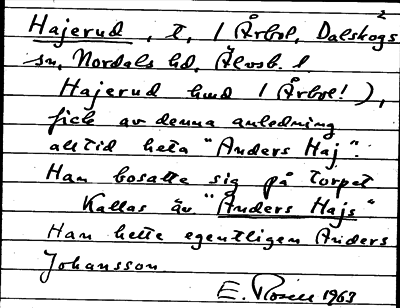 2
Hajerud, t, / Årbol, Dalskogs
sn, Nordals hd, Älvsb. l
Hajerud hmd / Årbol!),
fick av denna anledning
alltid heta "Anders Haj".
Han bosatte sig på torpet
Kallas äv "Anders Hajs"
Han hette egentligen Anders
Johansson
E. Rosén 1963